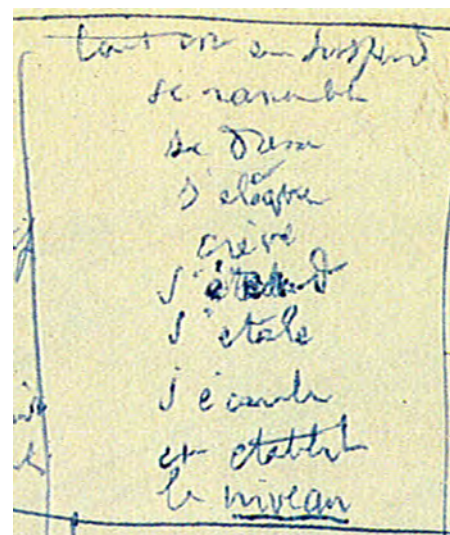 tout est en suspend
se rassemble
se dresse
s'élague
crève
s'étend
s'étale
s'écoule
et établit
le niveau